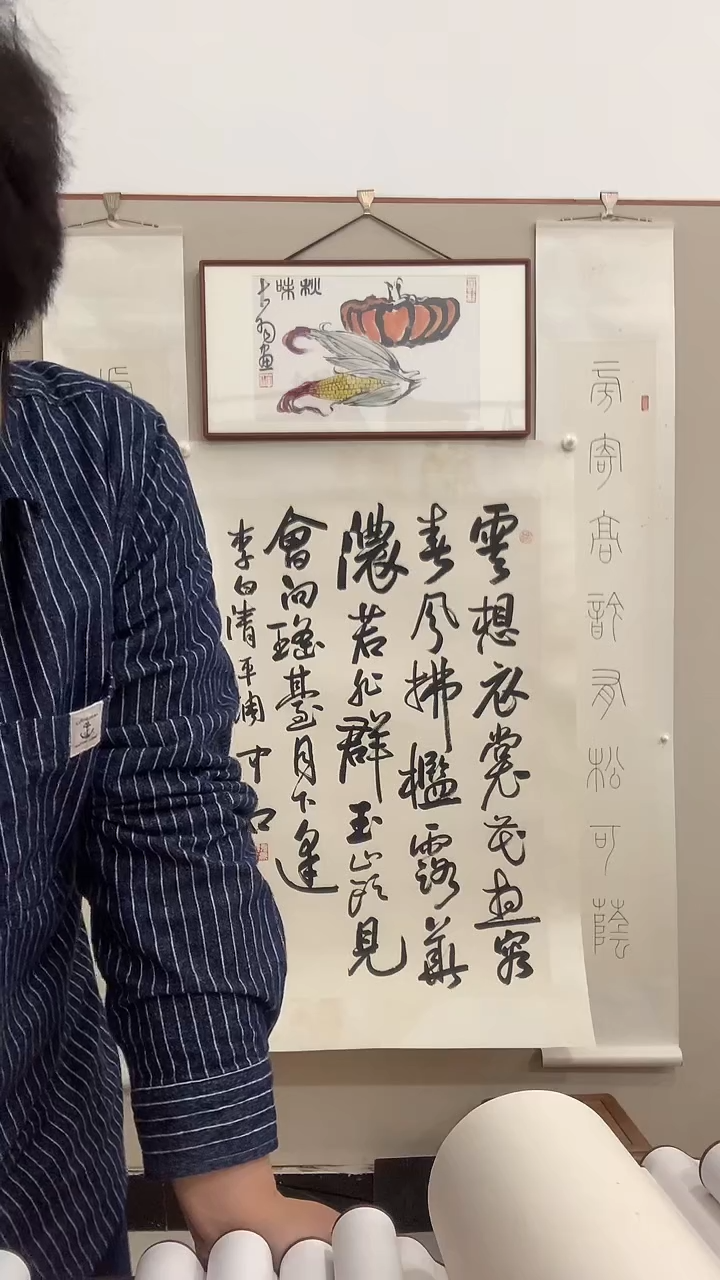 秋味
雲想衣裳花想容
春風拂檻露華
濃若非群玉山頭見
會向瑤臺月下逢
李白清平調 中
寄高
有松可蔭